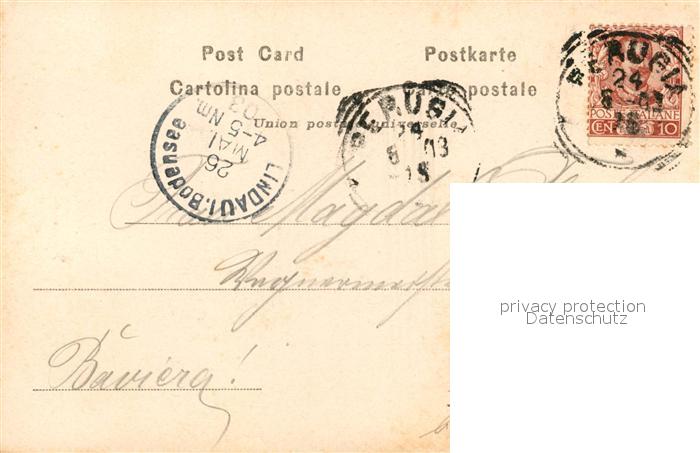 Post Card Postkarte
Cartolina postale postale
Union postale universelle
PERUGIA
24
5 03
18
PERUGIA
24
5 03
18
POSTE ITALIANE
CENT 10
LINDAU i. Bodensee
26
MAI
03
4-5 Nm.
Magdal
Wagnermeist
Baviera!
privacy protection
Datenschutz